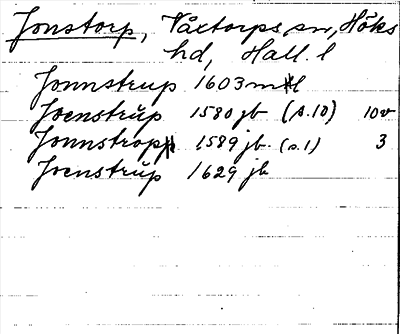 Jonstorp, Våxtorps sn, Höks
hd, Hall. l
Jonnstrup 1603 mtl
Joenstrup 1580 jb (s.10) 10v
Jonnstropp 1589 jb. (s.1) 3
Joenstrup 1629 jb